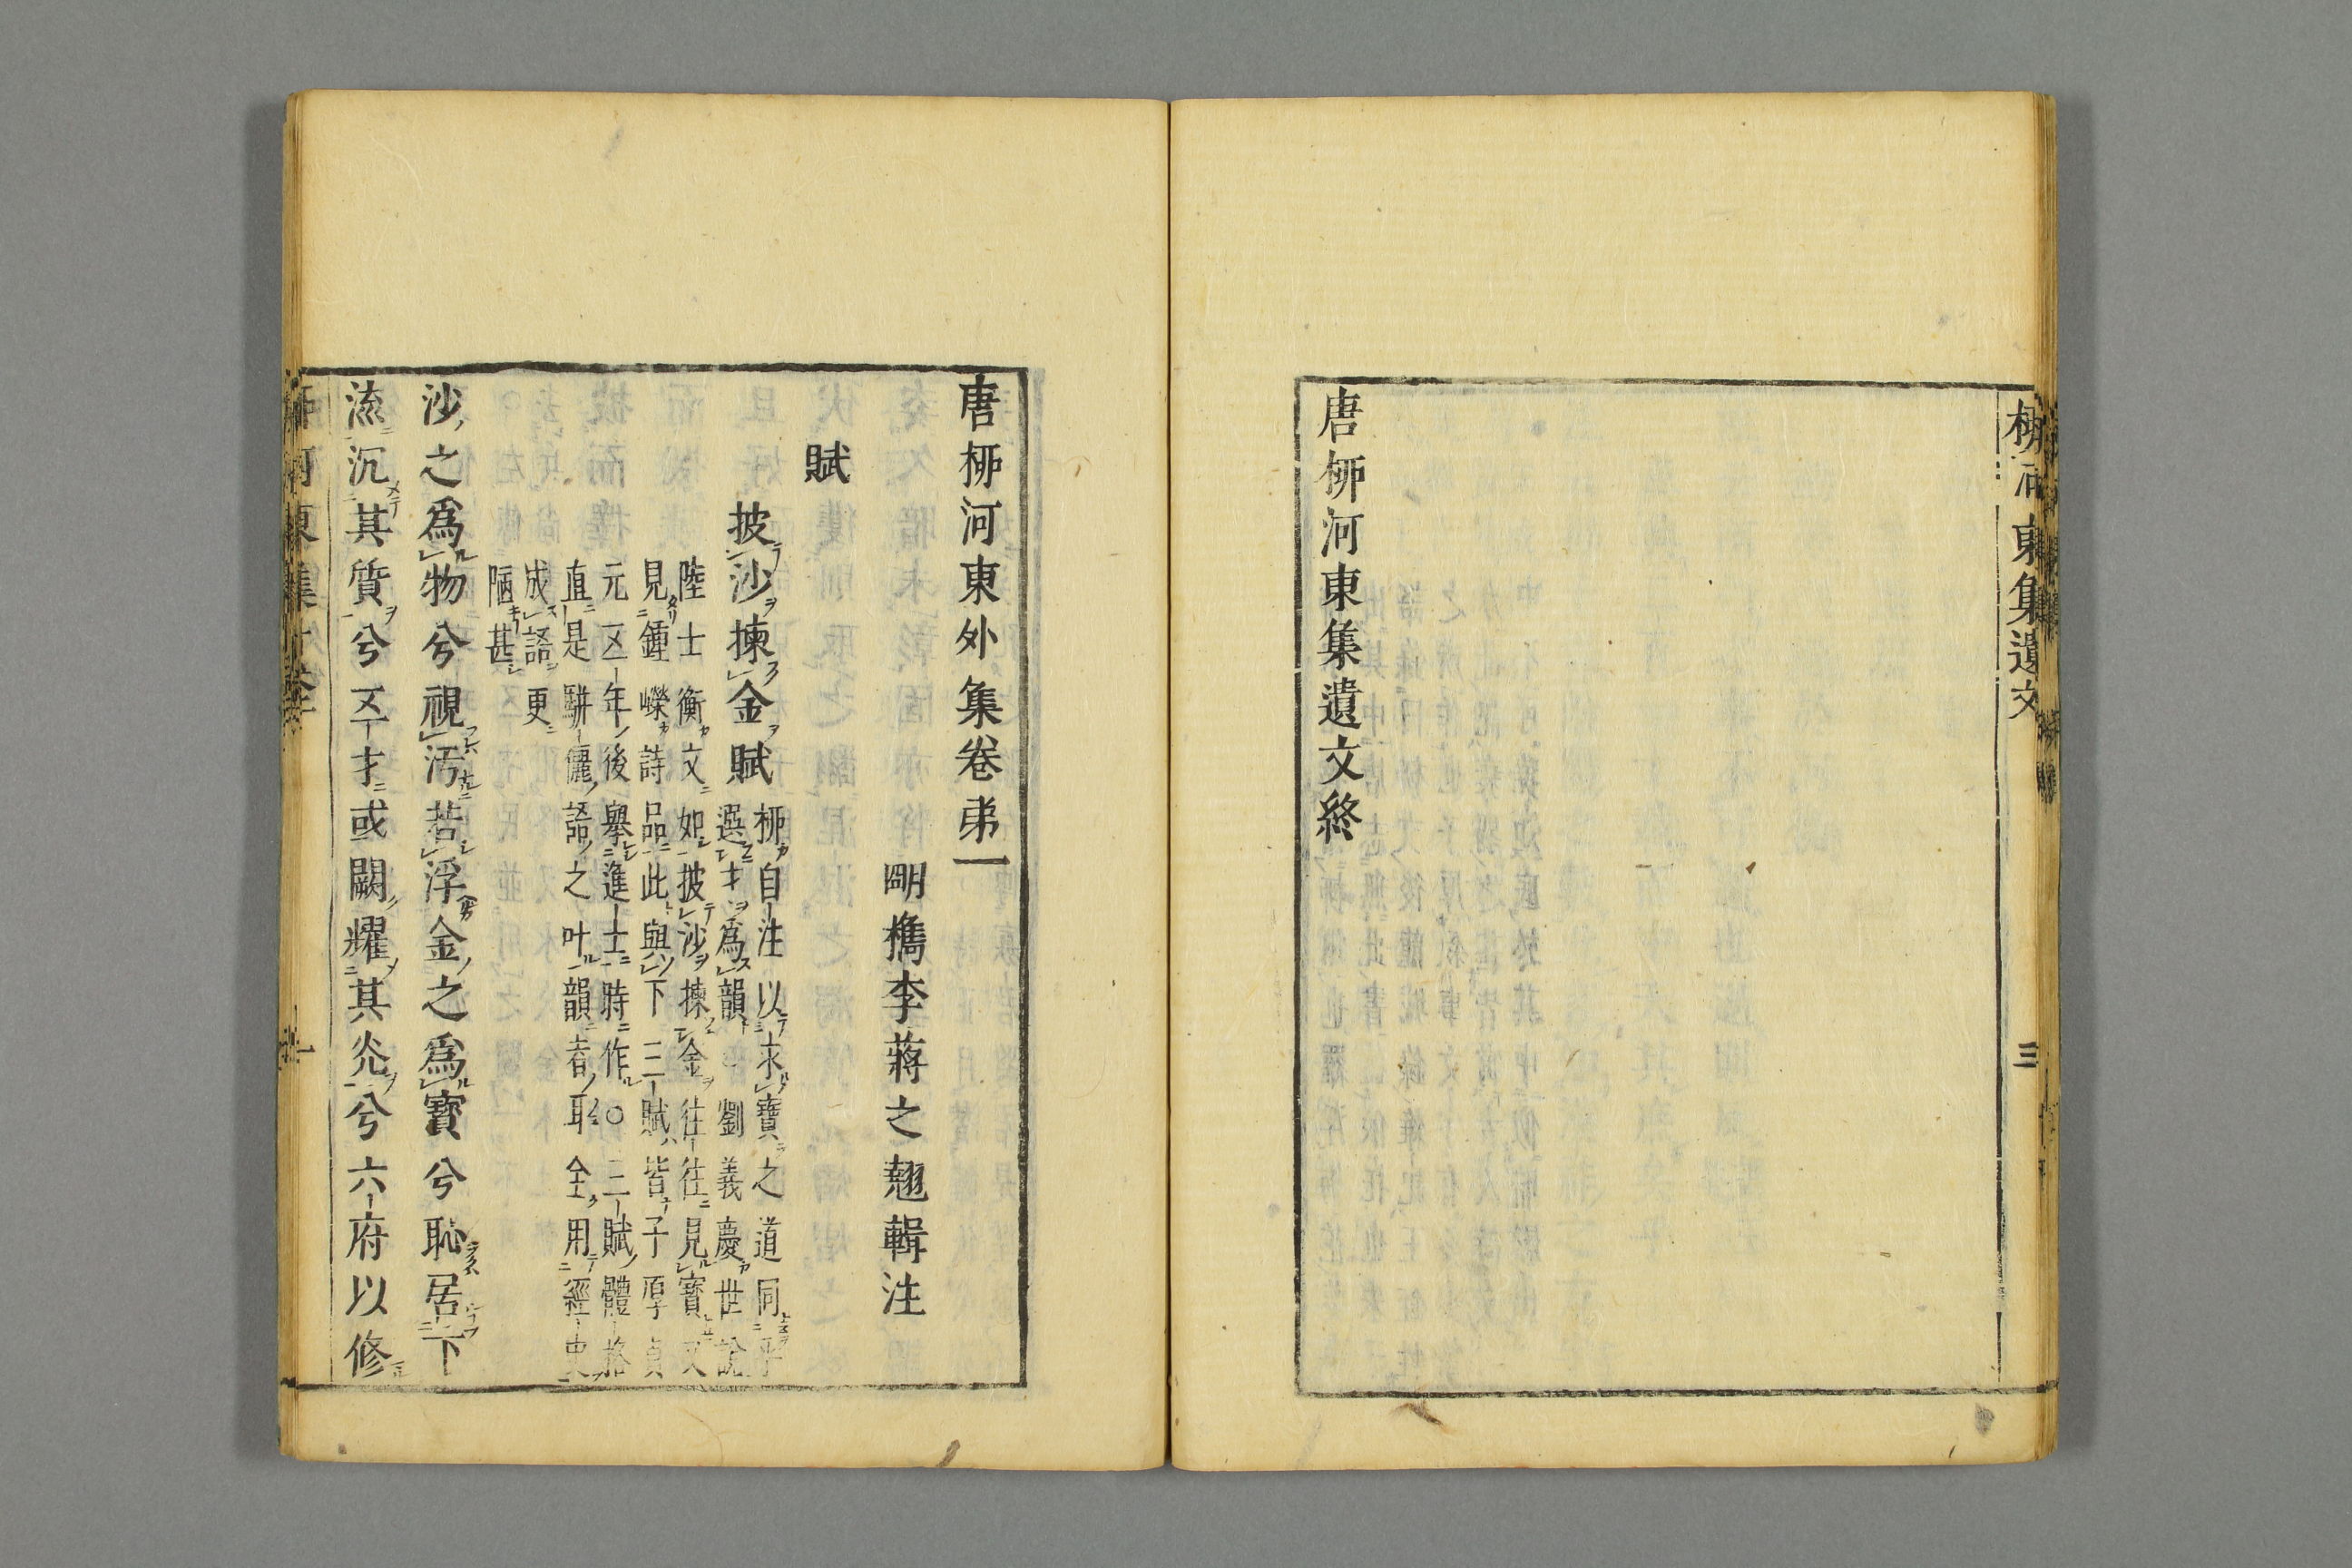 柳河東集遺文
三
唐柳河東集遺文終
唐柳河東外集卷弟一
明檇李蔣之翹輯注
賦
披沙揀金賦
柳自注以求寶之道同乎
選才為韻劉義慶世說
陸士衡文如披沙揀金往往見寶又
見鍾嶸詩品此與下三賦皆子厚貞
元五年後舉進士時作〇二賦體格
直是駢儷語之叶韻者耳全用經史
成語更
陋甚
沙之爲物兮視汚若浮金之爲寶兮恥居下
流沉其質兮五才或闕耀其光兮六府以修
柳河東集外卷一
一